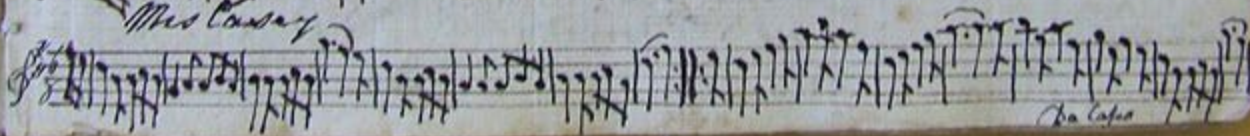 Mrs Casey
6
8
Da Capo